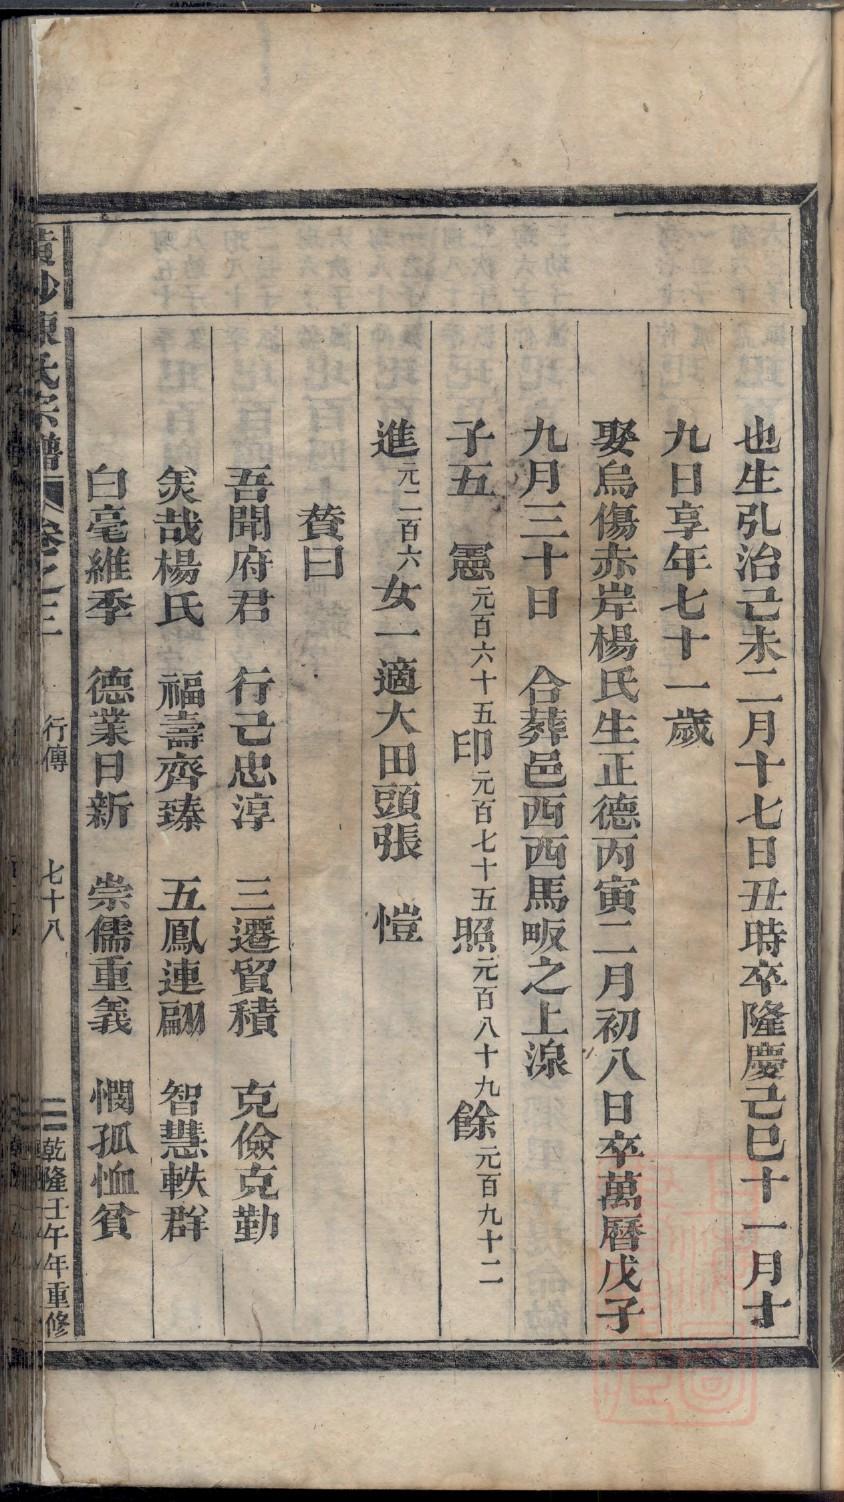 也生弘治己未二月十七日丑時卒隆慶己巳十一月十
九日享年七十一歲
娶烏傷赤岸楊氏生正德丙寅二月初八日卒萬曆戊子
九月三十日 合葬邑西西馬畈之上湶
子五 憲元百六十五印元百七十五照元百八十九餘元百九十二
進元二百六女一適大田頭張 愷
賛曰
吾聞府君 行己忠淳 三遷貿積 克儉克勤
矣哉楊氏 福壽齊臻 五鳳連翩 智慧軼群
白毫維季 德業日新 崇儒重義 憫孤恤貧
黃沙陳氏宗譜 卷之三 行傳 七十八 乾隆壬午年重修